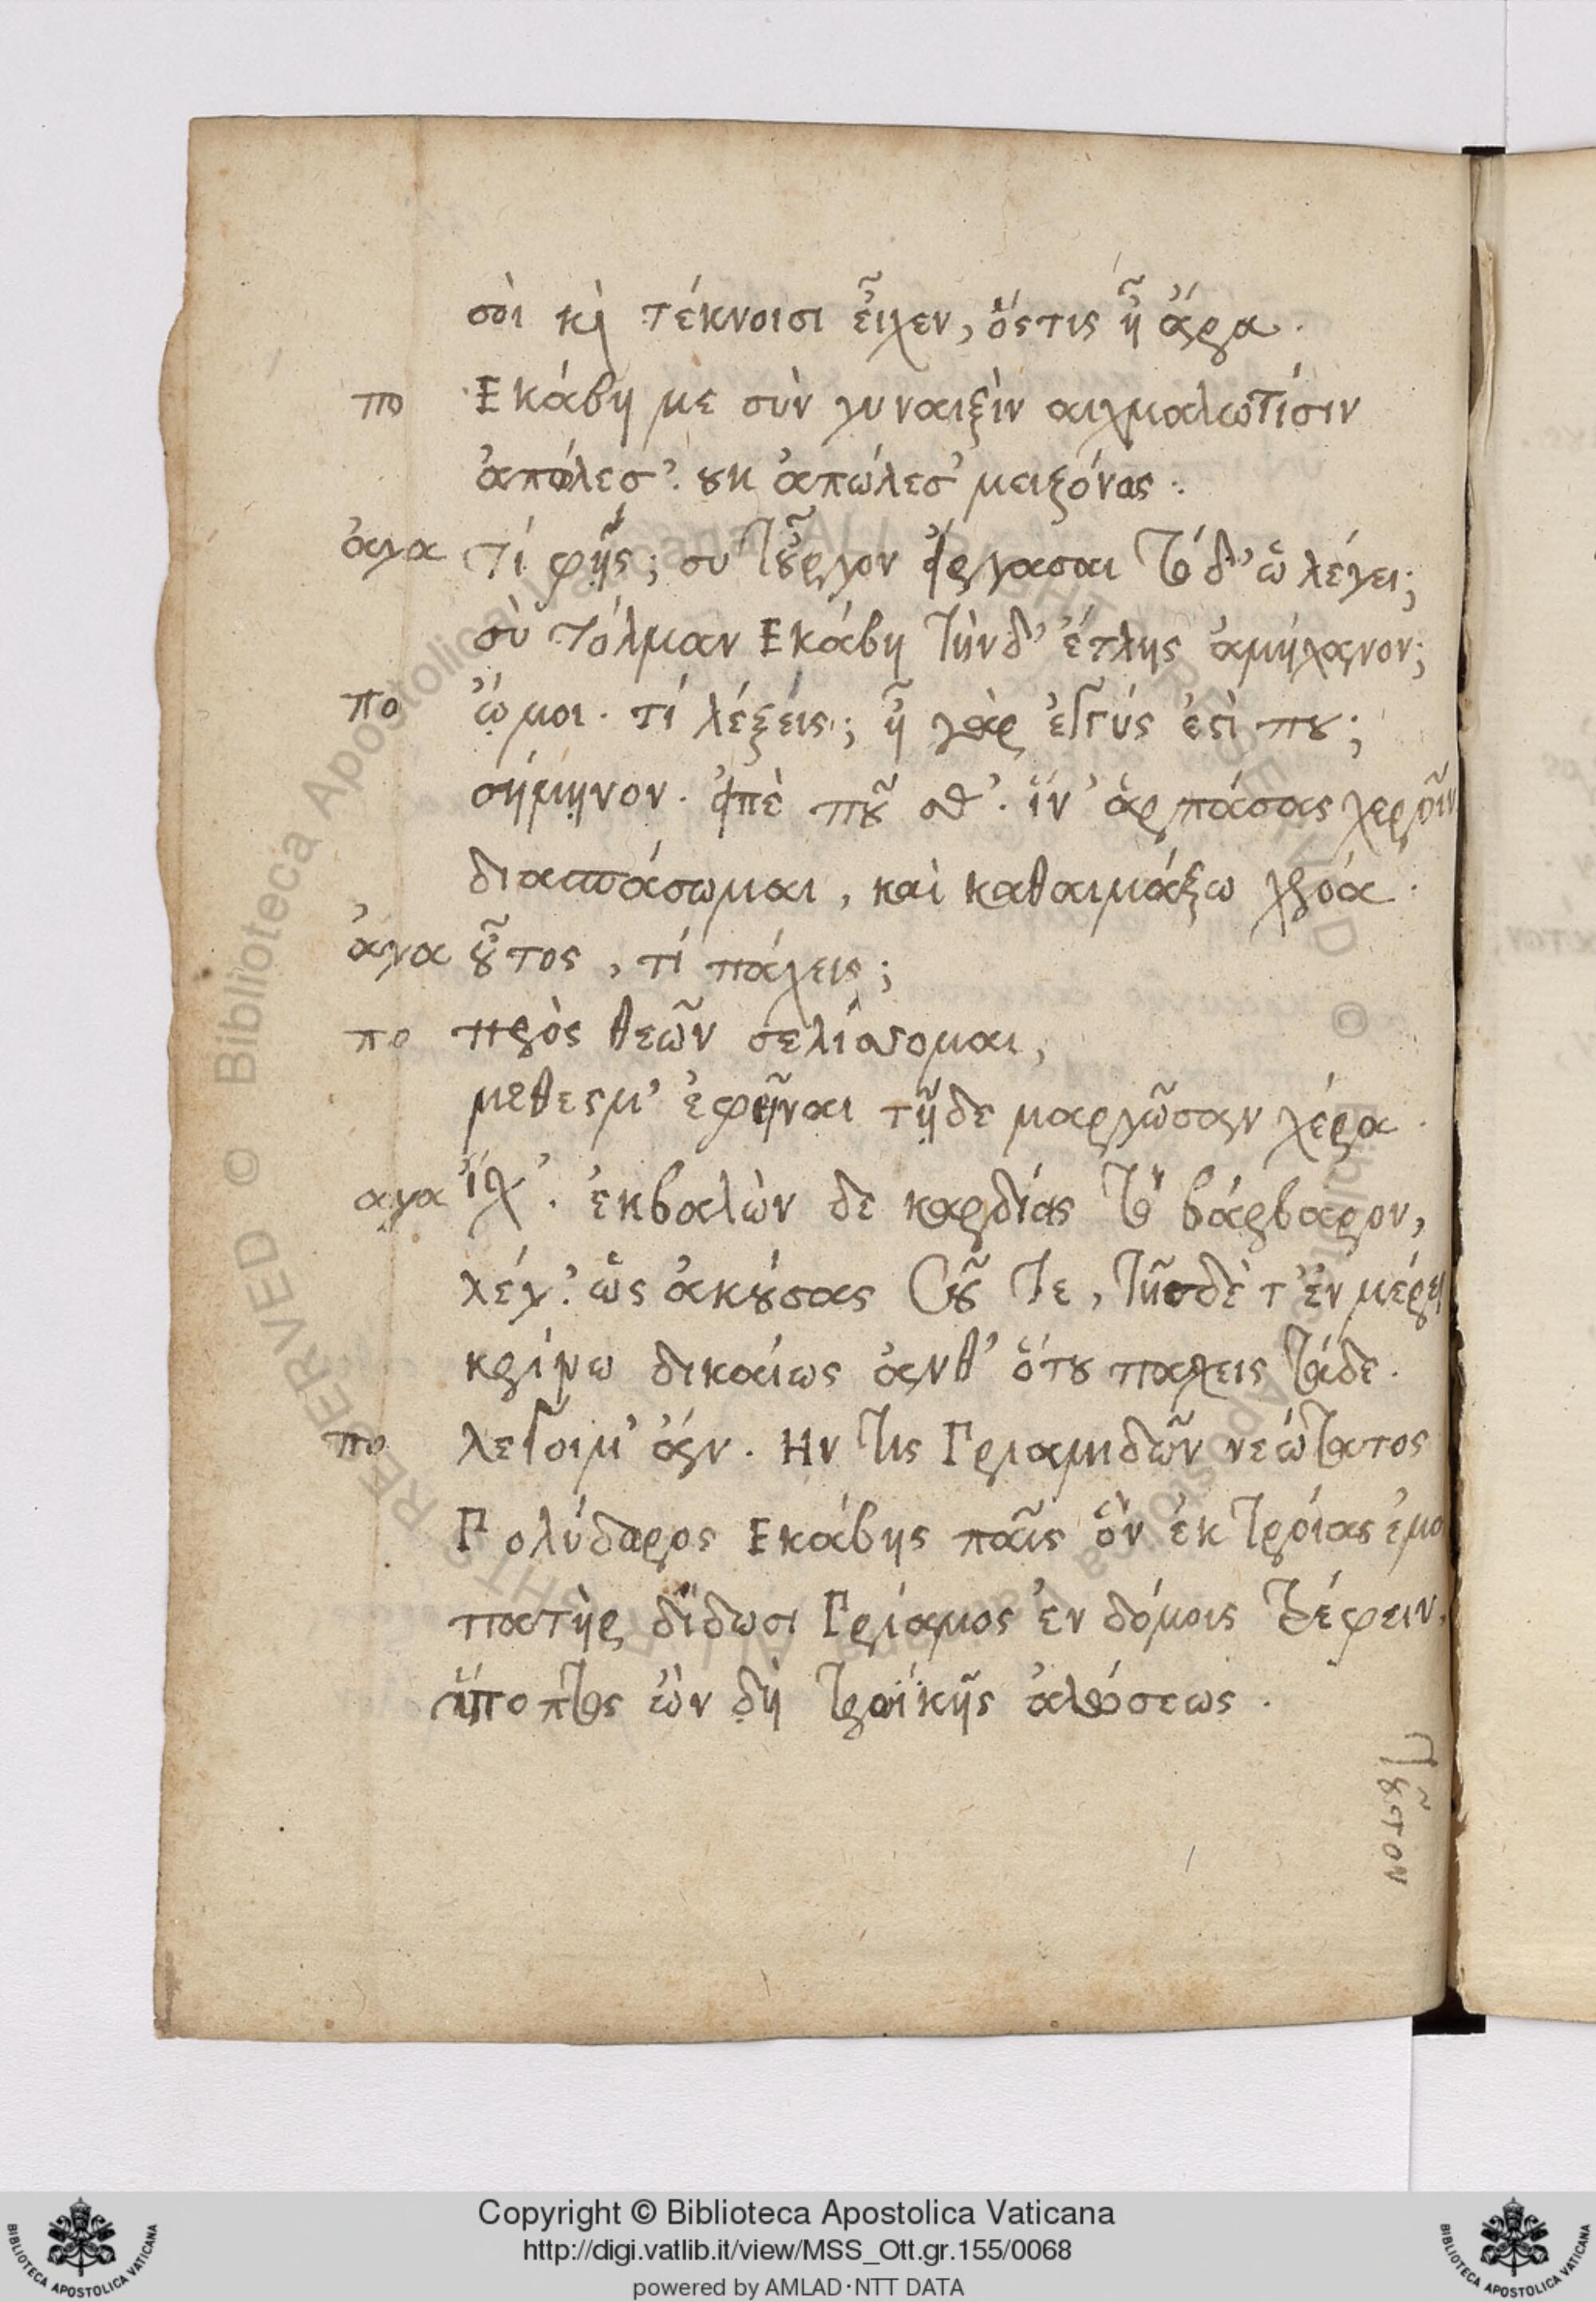 σοὶ κὶ τέκνοισι εἶχεν, ὅςτις ἦ ἄρα.
πο Εκάβη με σὺν γυναιξὶν αιχμαλωτίσιν
ἀπόλεσ'. ȣκ ἀπώλεσ' μειζόνως.
ἀγα τί φῄς; συ τȣ̓͂ργον εἴργασαι τόδ' ὡ λέγει;
σὺ τόλμαν Εκάβη τήνδ' έτλης ἀμήχανον;
πο ὤμοι. τί λέξεις; ἦ γὰρ ἐγγύς ἐϛὶ πȣ;
σήμηνον. εἰπὲ πȣ͂ σθ'. ἵν' ἁρπάσας χεροῖν
διασπάσωμαι, καὶ καθαιμάξω χρόα.
ἀγα ȣ̔͂τος, τί πάχεις;
πο πρὸς θεῶν σε λίσσομαι,
μέθες μ' ἐφεῖναι τῇδε μαργῶσαν χέρα.
αγα ἴχ'. ἐκβαλὼν δε καρδίας τὸ βάρβαρον,
λέγ'. ὡς ἀκȣ́σας σȣ͂ τε, τῆσδέ τ' ἐν μέρει
κρίνω δικαίως ἀνθ' ὅτȣ παχεις τάδε.
πο λέγοιμ' άν. Ην τις Πριαμιδῶν νεώτατος
Πολύδωρος Εκάβης παῖς ὃν ἐκ τροίας ἐμο
πατὴρ δίδωσι Πρίαμος ἐν δόμοις τρέφειν,
ὕποπτος ὢν δὴ τροϊκῆς ἁλώσεως.
τȣ͂τον
Copyright © Biblioteca Apostolica Vaticana
http://digi.vatlib.it/view/MSS_Ott.gr.155/0068
powered by AMLAD·NTT DATA